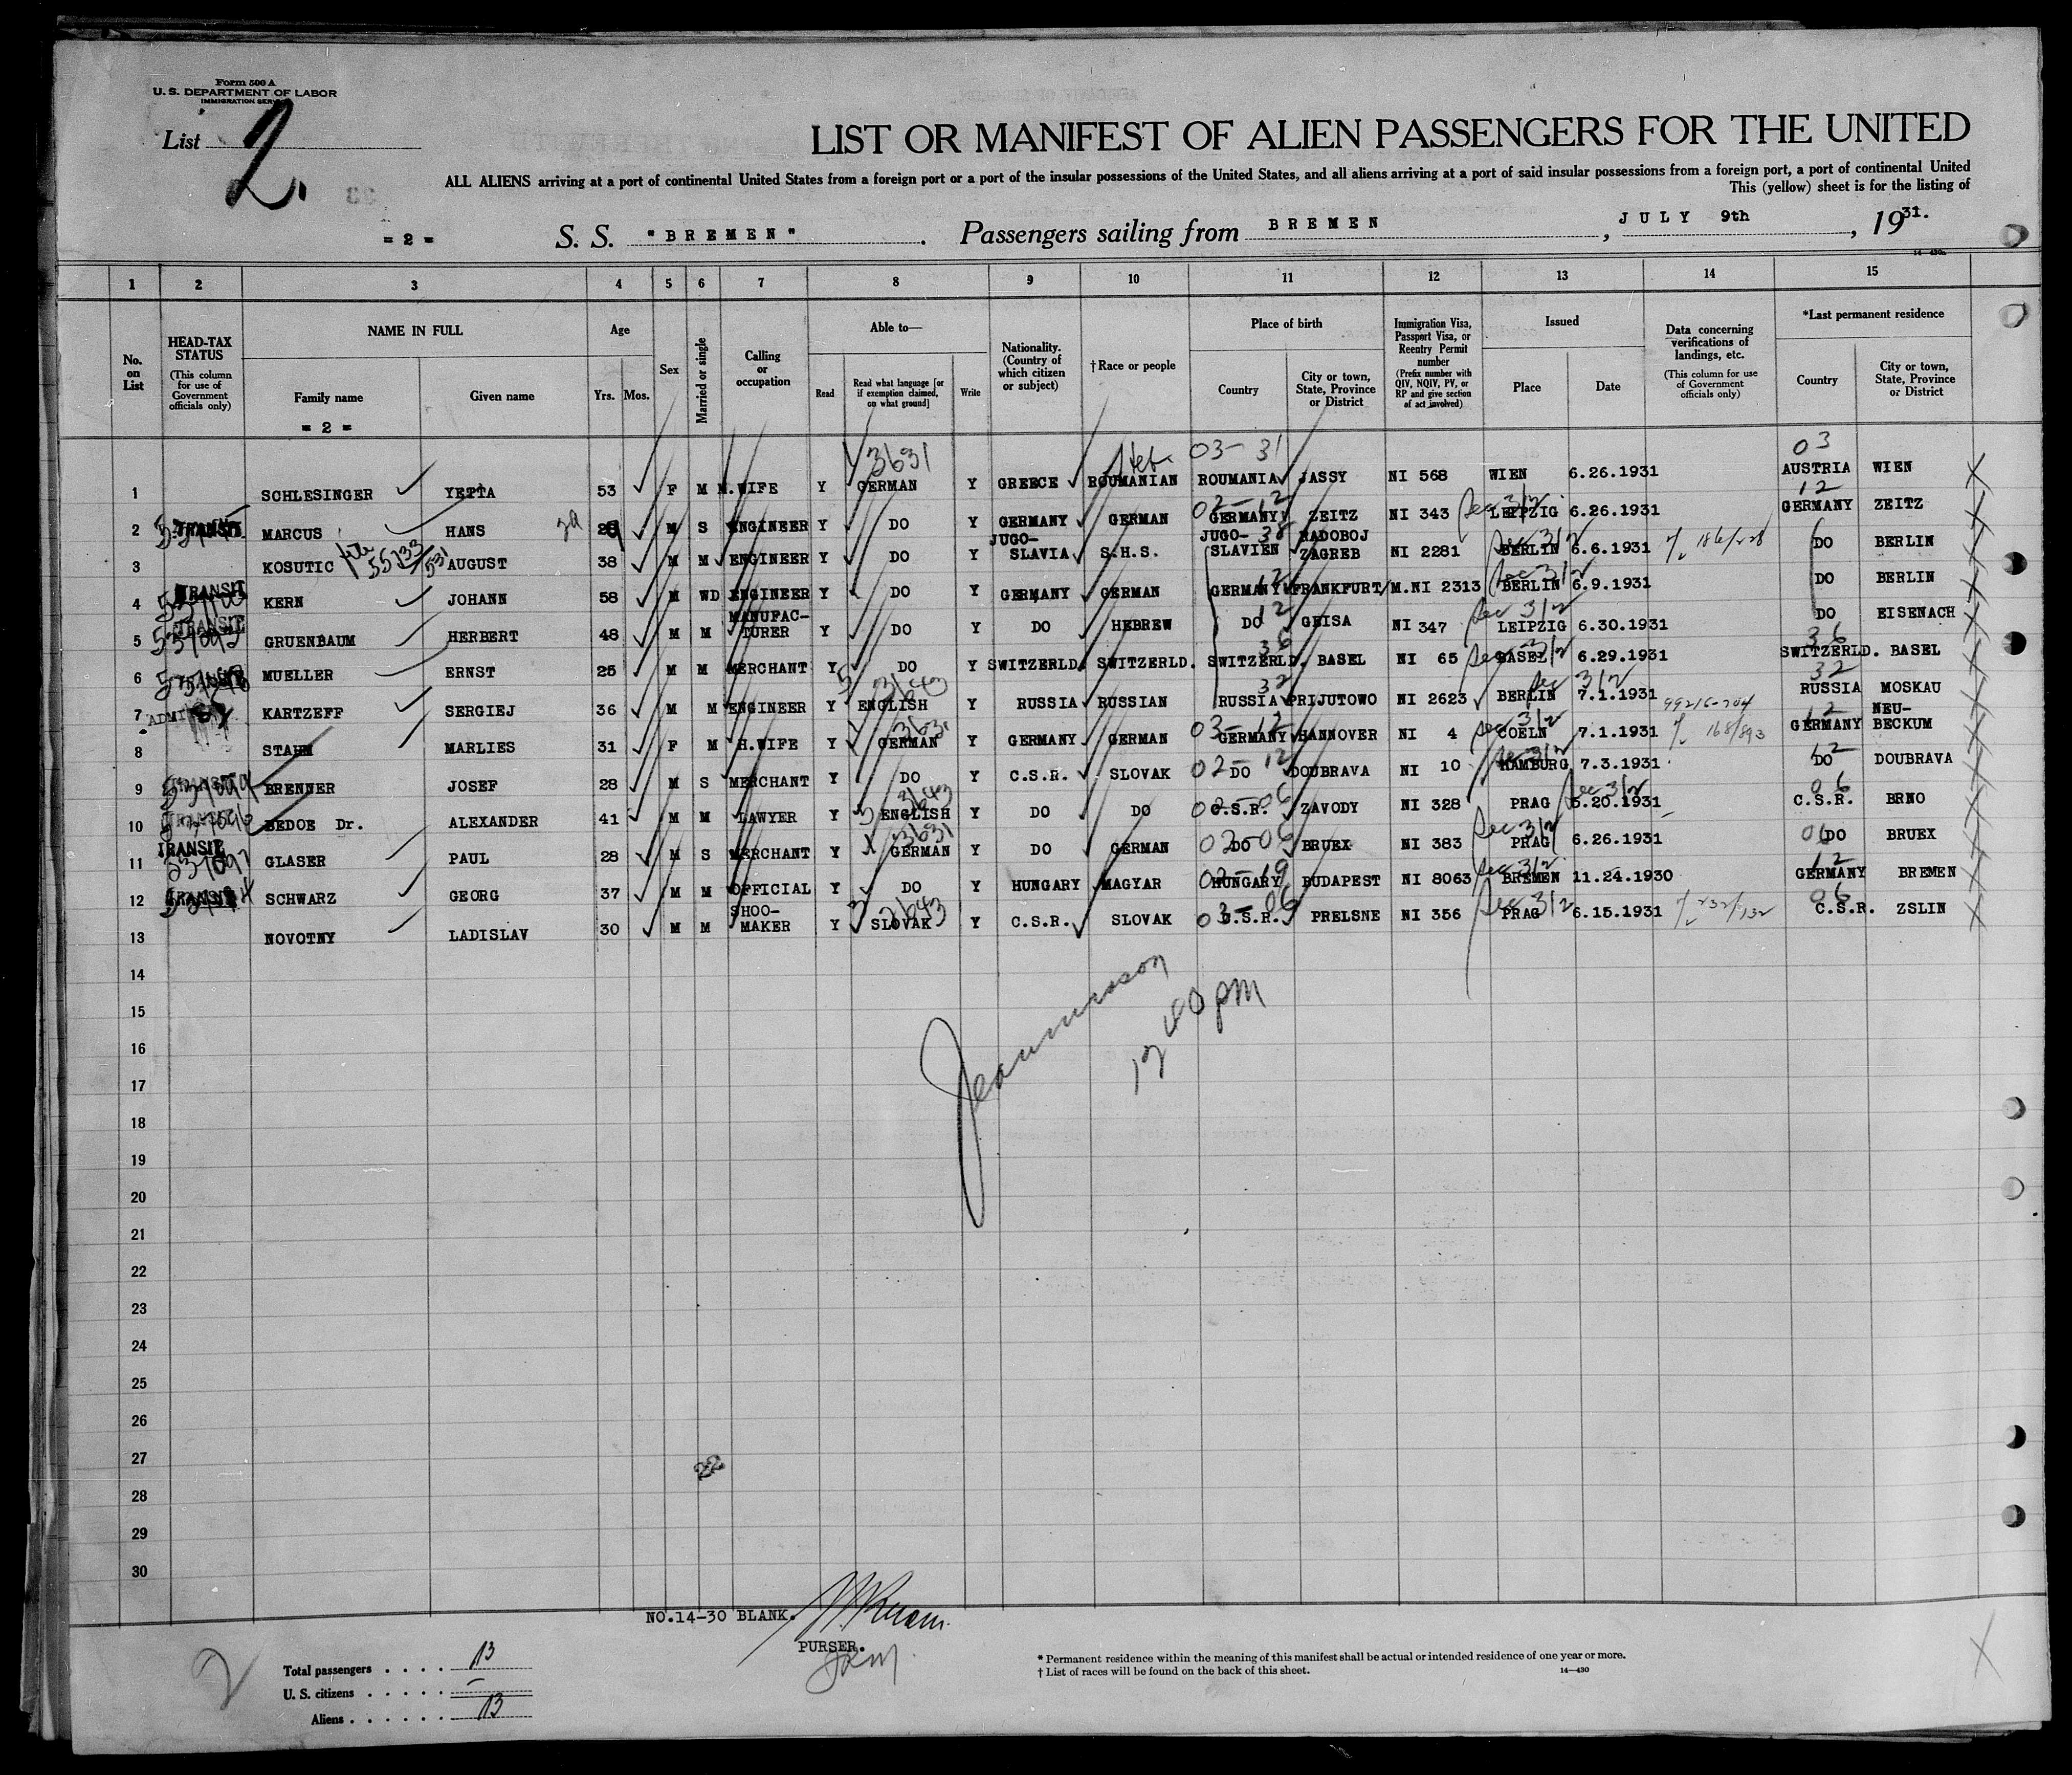 Form 500 A
U. S. DEPARTMENT OF LABOR
IMMIGRATION SERV
List 2.
LIST OR MANIFEST OF ALIEN PASSENGERS FOR THE UNITED
ALL ALIENS arriving at a port of continental United States from a foreign port or a port of the insular possessions of the United States, and all aliens arriving at a port of said insular possessions from a foreign port, a port of continental United
This (yellow) sheet is for the listing of
= 2 = S. S. "BREMEN". Passengers sailing from BREMEN, JULY 9th, 1931.
14—430a
1 2 3 4 5 6 7 8 9 10 11 12 13 14 15
No. on List
HEAD-TAX STATUS
(This column for use of Government officials only)
NAME IN FULL
Family name Given name
= 2 =
Age
Yrs. Mos.
Sex
Married or single
Calling or occupation
Able to—
Read
Read what language [or if exemption claimed, on what ground]
Write
Nationality. (Country of which citizen or subject)
† Race or people
Place of birth
Country
City or town, State, Province or District
Immigration Visa, Passport Visa, or Reentry Permit number
(Prefix number with QIV, NQIV, PV, or RP and give section of act involved)
Issued
Place Date
Data concerning verifications of landings, etc.
(This column for use of Government officials only)
*Last permanent residence
Country
City or town, State, Province or District
3631 Heb. 03-31 03
1 SCHLESINGER YETTA 53 F M H.WIFE Y GERMAN Y GREECE ROUMANIAN ROUMANIA JASSY NI 568 WIEN 6.26.1931 AUSTRIA WIEN
02-12 Sec 3/2 12
2 TRANSIT MARCUS HANS 29 M S ENGINEER Y DO Y GERMANY GERMAN GERMANY ZEITZ NI 343 LEIPZIG 6.26.1931 GERMANY ZEITZ
3 KOSUTIC 55733/531 AUGUST 38 M M ENGINEER Y DO Y JUGO-SLAVIA S.H.S. JUGO-SLAVIEN RADOBOJ ZAGREB NI 2281 BERLIN 6.6.1931 DO BERLIN
4 TRANSIT KERN JOHANN 58 M WD ENGINEER Y DO Y GERMANY GERMAN GERMANY FRANKFURT/M. NI 2313 BERLIN 6.9.1931 DO BERLIN
5 TRANSIT GRUENBAUM HERBERT 48 M M MANUFAC-TURER Y DO Y DO HEBREW DO GEISA NI 347 LEIPZIG 6.30.1931 DO EISENACH
6 TRANSIT MUELLER ERNST 25 M M MERCHANT Y DO Y SWITZERLD. SWITZERLD. SWITZERLD. BASEL NI 65 BASEL 6.29.1931 SWITZERLD. BASEL
7 KARTZEFF SERGIEJ 36 M M ENGINEER Y ENGLISH Y RUSSIA RUSSIAN RUSSIA PRIJUTOWO NI 2623 BERLIN 7.1.1931 RUSSIA MOSKAU
8 STAHM MARLIES 31 F M H.WIFE Y GERMAN Y GERMANY GERMAN GERMANY HANNOVER NI 4 COELN 7.1.1931 168/893 GERMANY NEU-BECKUM
9 TRANSIT BRENNER JOSEF 28 M S MERCHANT Y DO Y C.S.R. SLOVAK DO DOUBRAVA NI 10 HAMBURG 7.3.1931 DO DOUBRAVA
10 TRANSIT BEDOE Dr. ALEXANDER 41 M M LAWYER Y ENGLISH Y DO DO C.S.R. ZAVODY NI 328 PRAG 5.20.1931 C.S.R. BRNO
11 TRANSIT GLASER PAUL 28 M S MERCHANT Y GERMAN Y DO GERMAN DO BRUEX NI 383 PRAG 6.26.1931 DO BRUEX
12 TRANSIT SCHWARZ GEORG 37 M M OFFICIAL Y DO Y HUNGARY MAGYAR HUNGARY BUDAPEST NI 8063 BREMEN 11.24.1930 GERMANY BREMEN
13 NOVOTNY LADISLAV 30 M M SHOO-MAKER Y SLOVAK Y C.S.R. SLOVAK C.S.R. PRELSNE NI 356 PRAG 6.15.1931 C.S.R. ZSLIN
14
15
12 40 pm
16
17
18
19
20
21
22
23
24
25
26
27
22
28
29
30
NO.14-30 BLANK.
PURSER.
2
Total passengers . . . . 13
U. S. citizens . . . . . —
Aliens . . . . . . 13
* Permanent residence within the meaning of this manifest shall be actual or intended residence of one year or more.
† List of races will be found on the back of this sheet.
14—430